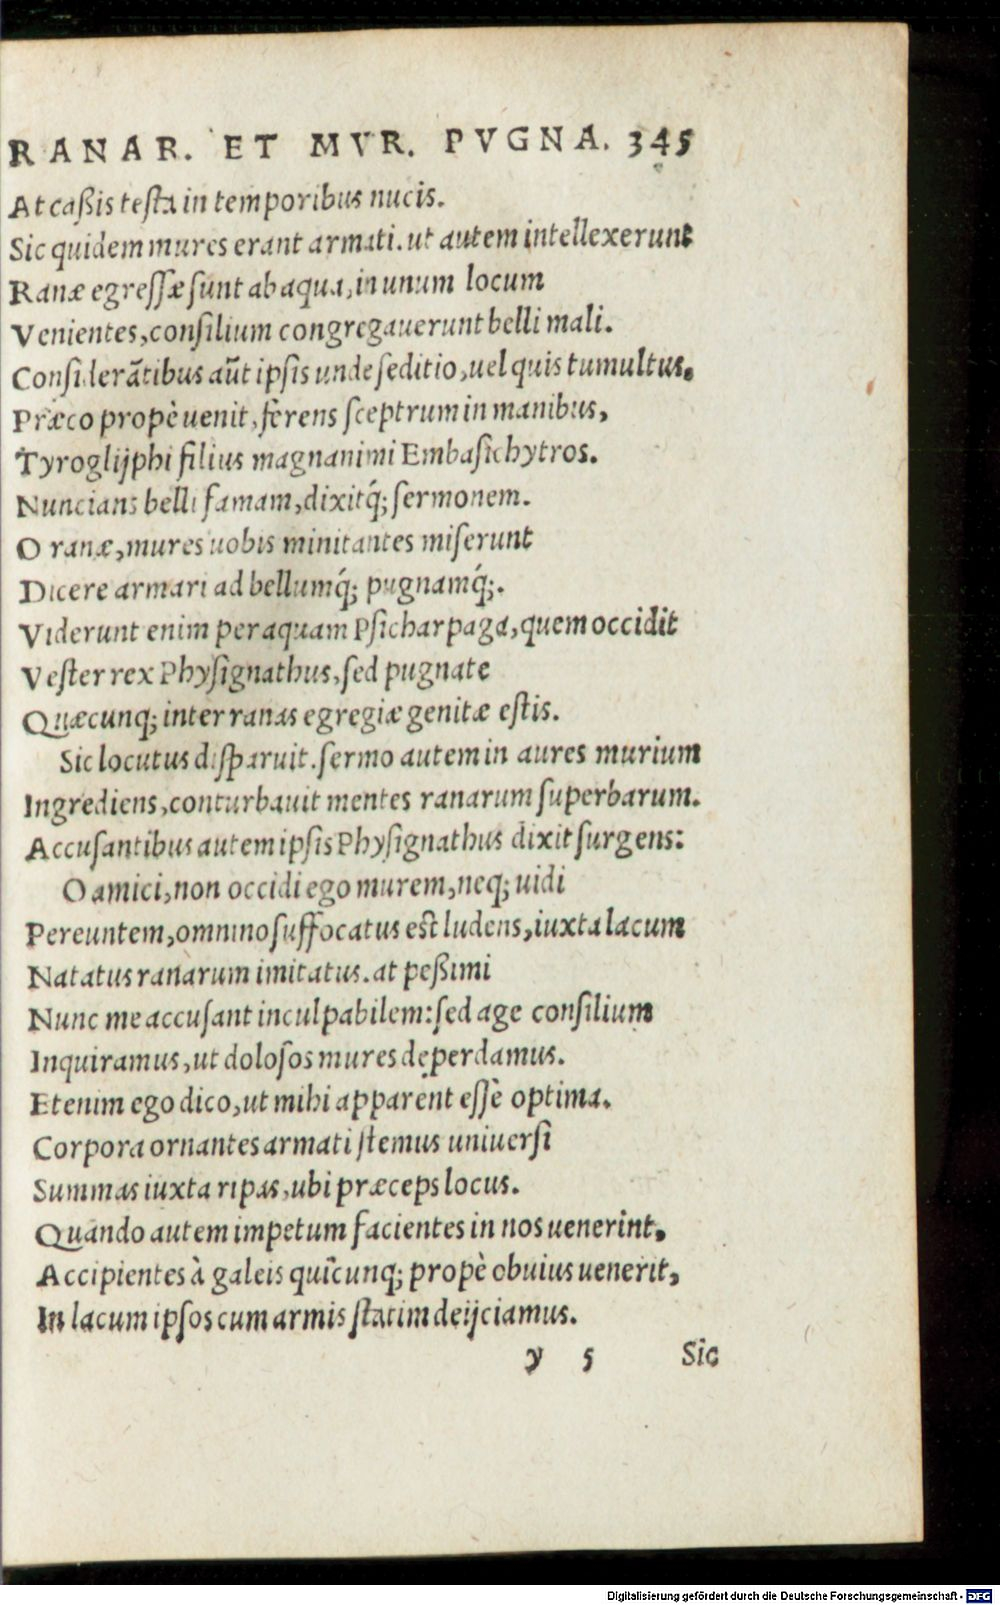 RANAR. ET MVR. PVGNA. 345
At caßis testa in temporibus nucis.
Sic quidem mures erant armati. ut autem intellexerunt
Ranæ egressæ sunt ab aqua, in unum locum
Venientes, consilium congregauerunt belli mali.
Considerãtibus aũt ipsis unde seditio, uel quis tumultus.
Præco propè uenit, ferens sceptrum in manibus,
Tyroglijphi filius magnanimi Embasichytros.
Nuncians belli famam, dixitq́; sermonem.
O ranæ, mures uobis minitantes miserunt
Dicere armari ad bellumq́; pugnamq́;.
Viderunt enim per aquam Psicharpaga, quem occidit
Vester rex Physignathus, sed pugnate
Quæcunq; inter ranas egregiæ genitæ estis.
Sic locutus disparuit. sermo autem in aures murium
Ingrediens, conturbauit mentes ranarum superbarum.
Accusantibus autem ipsis Physignathus dixit surgens:
O amici, non occidi ego murem, neq; uidi
Pereuntem, omnino suffocatus est ludens, iuxta lacum
Natatus ranarum imitatus. at peßimi
Nunc me accusant inculpabilem: sed age consilium
Inquiramus, ut dolosos mures deperdamus.
Etenim ego dico, ut mihi apparent essè optima.
Corpora ornantes armati stemus uniuersi
Summas iuxta ripas, ubi præceps locus.
Quando autem impetum facientes in nos uenerint,
Accipientes à galeis quicunq; propè obuius uenerit,
In lacum ipsos cum armis statim deijciamus.
y 5 Sic
Digitalisierung gefördert durch die Deutsche Forschungsgemeinschaft - DFG